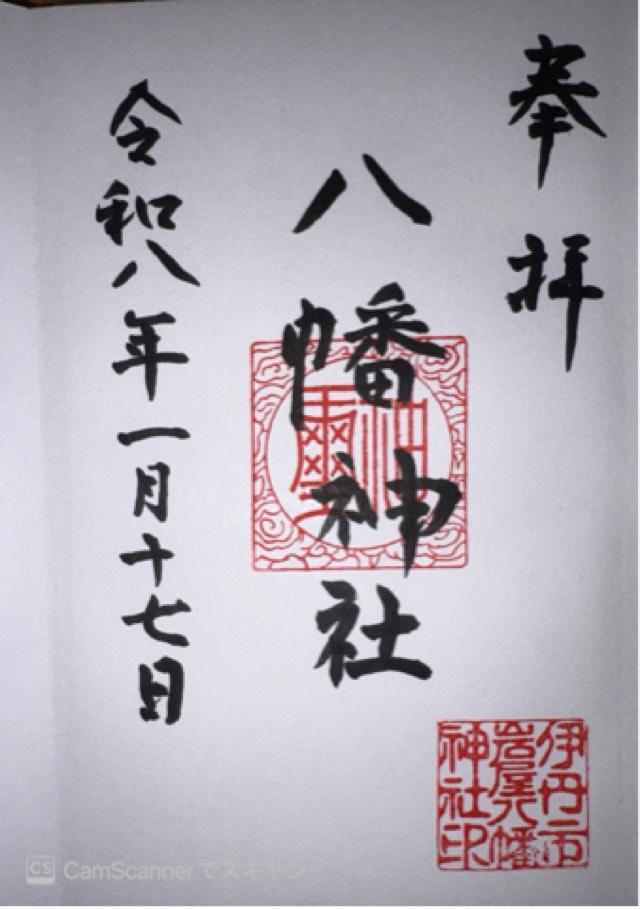 奉拝
八幡神社
神璽
令和八年一月十七日
伊丹市
岩屋八幡
神社印
CS CamScannerでスキャン